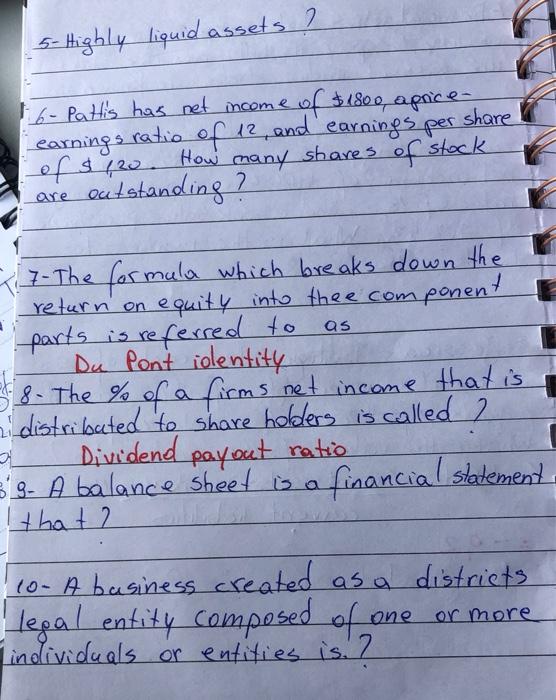 5- Highly liquid assets ?
6- Patti's has net income of $1800, a price-
earnings ratio of 12, and earnings per share
of $ 1,20. How many shares of stock
are outstanding ?
7- The formula which breaks down the
return on equity into thee component
parts is referred to as
Du Pont identity
8- The % of a firms net income that is
distributed to share holders is called ?
Dividend payout ratio
9- A balance sheet is a financial statement
that ?
10- A business created as a districts
legal entity composed of one or more
individuals or entities is. ?